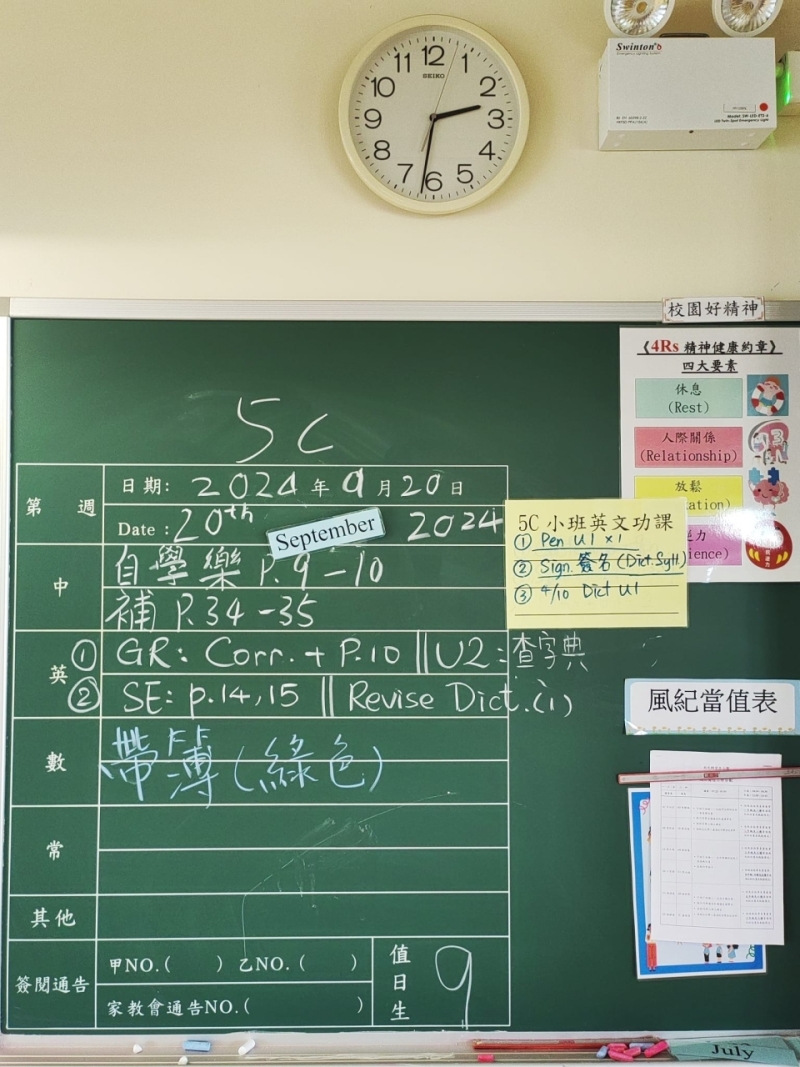 11 12 1
10 2
9 3
8 4
7 6 5
SEIKO
Swinton's
Emergency Lighting System
校園好精神
《4Rs 精神健康約章》
四大要素
休息
(Rest)
人際關係
(Relationship)
放鬆
5C
第 週
日期: 2024 年 9 月 20 日
Date : 20th September 2024
5C 小班英文功課
① Pen U1 x1
② Sign. 簽名 (Dict. Syll.)
③ 4/10 Dict U1
中
自學樂 P.9-10
補 P.34-35
英
① GR: Corr. + P.10 || U2: 查字典
② SE: p.14,15 || Revise Dict.(1)
風紀當值表
數
帶簿(綠色)
常
其他
簽閱通告
甲NO.( ) 乙NO.( )
家教會通告NO.( )
值日生
9
July